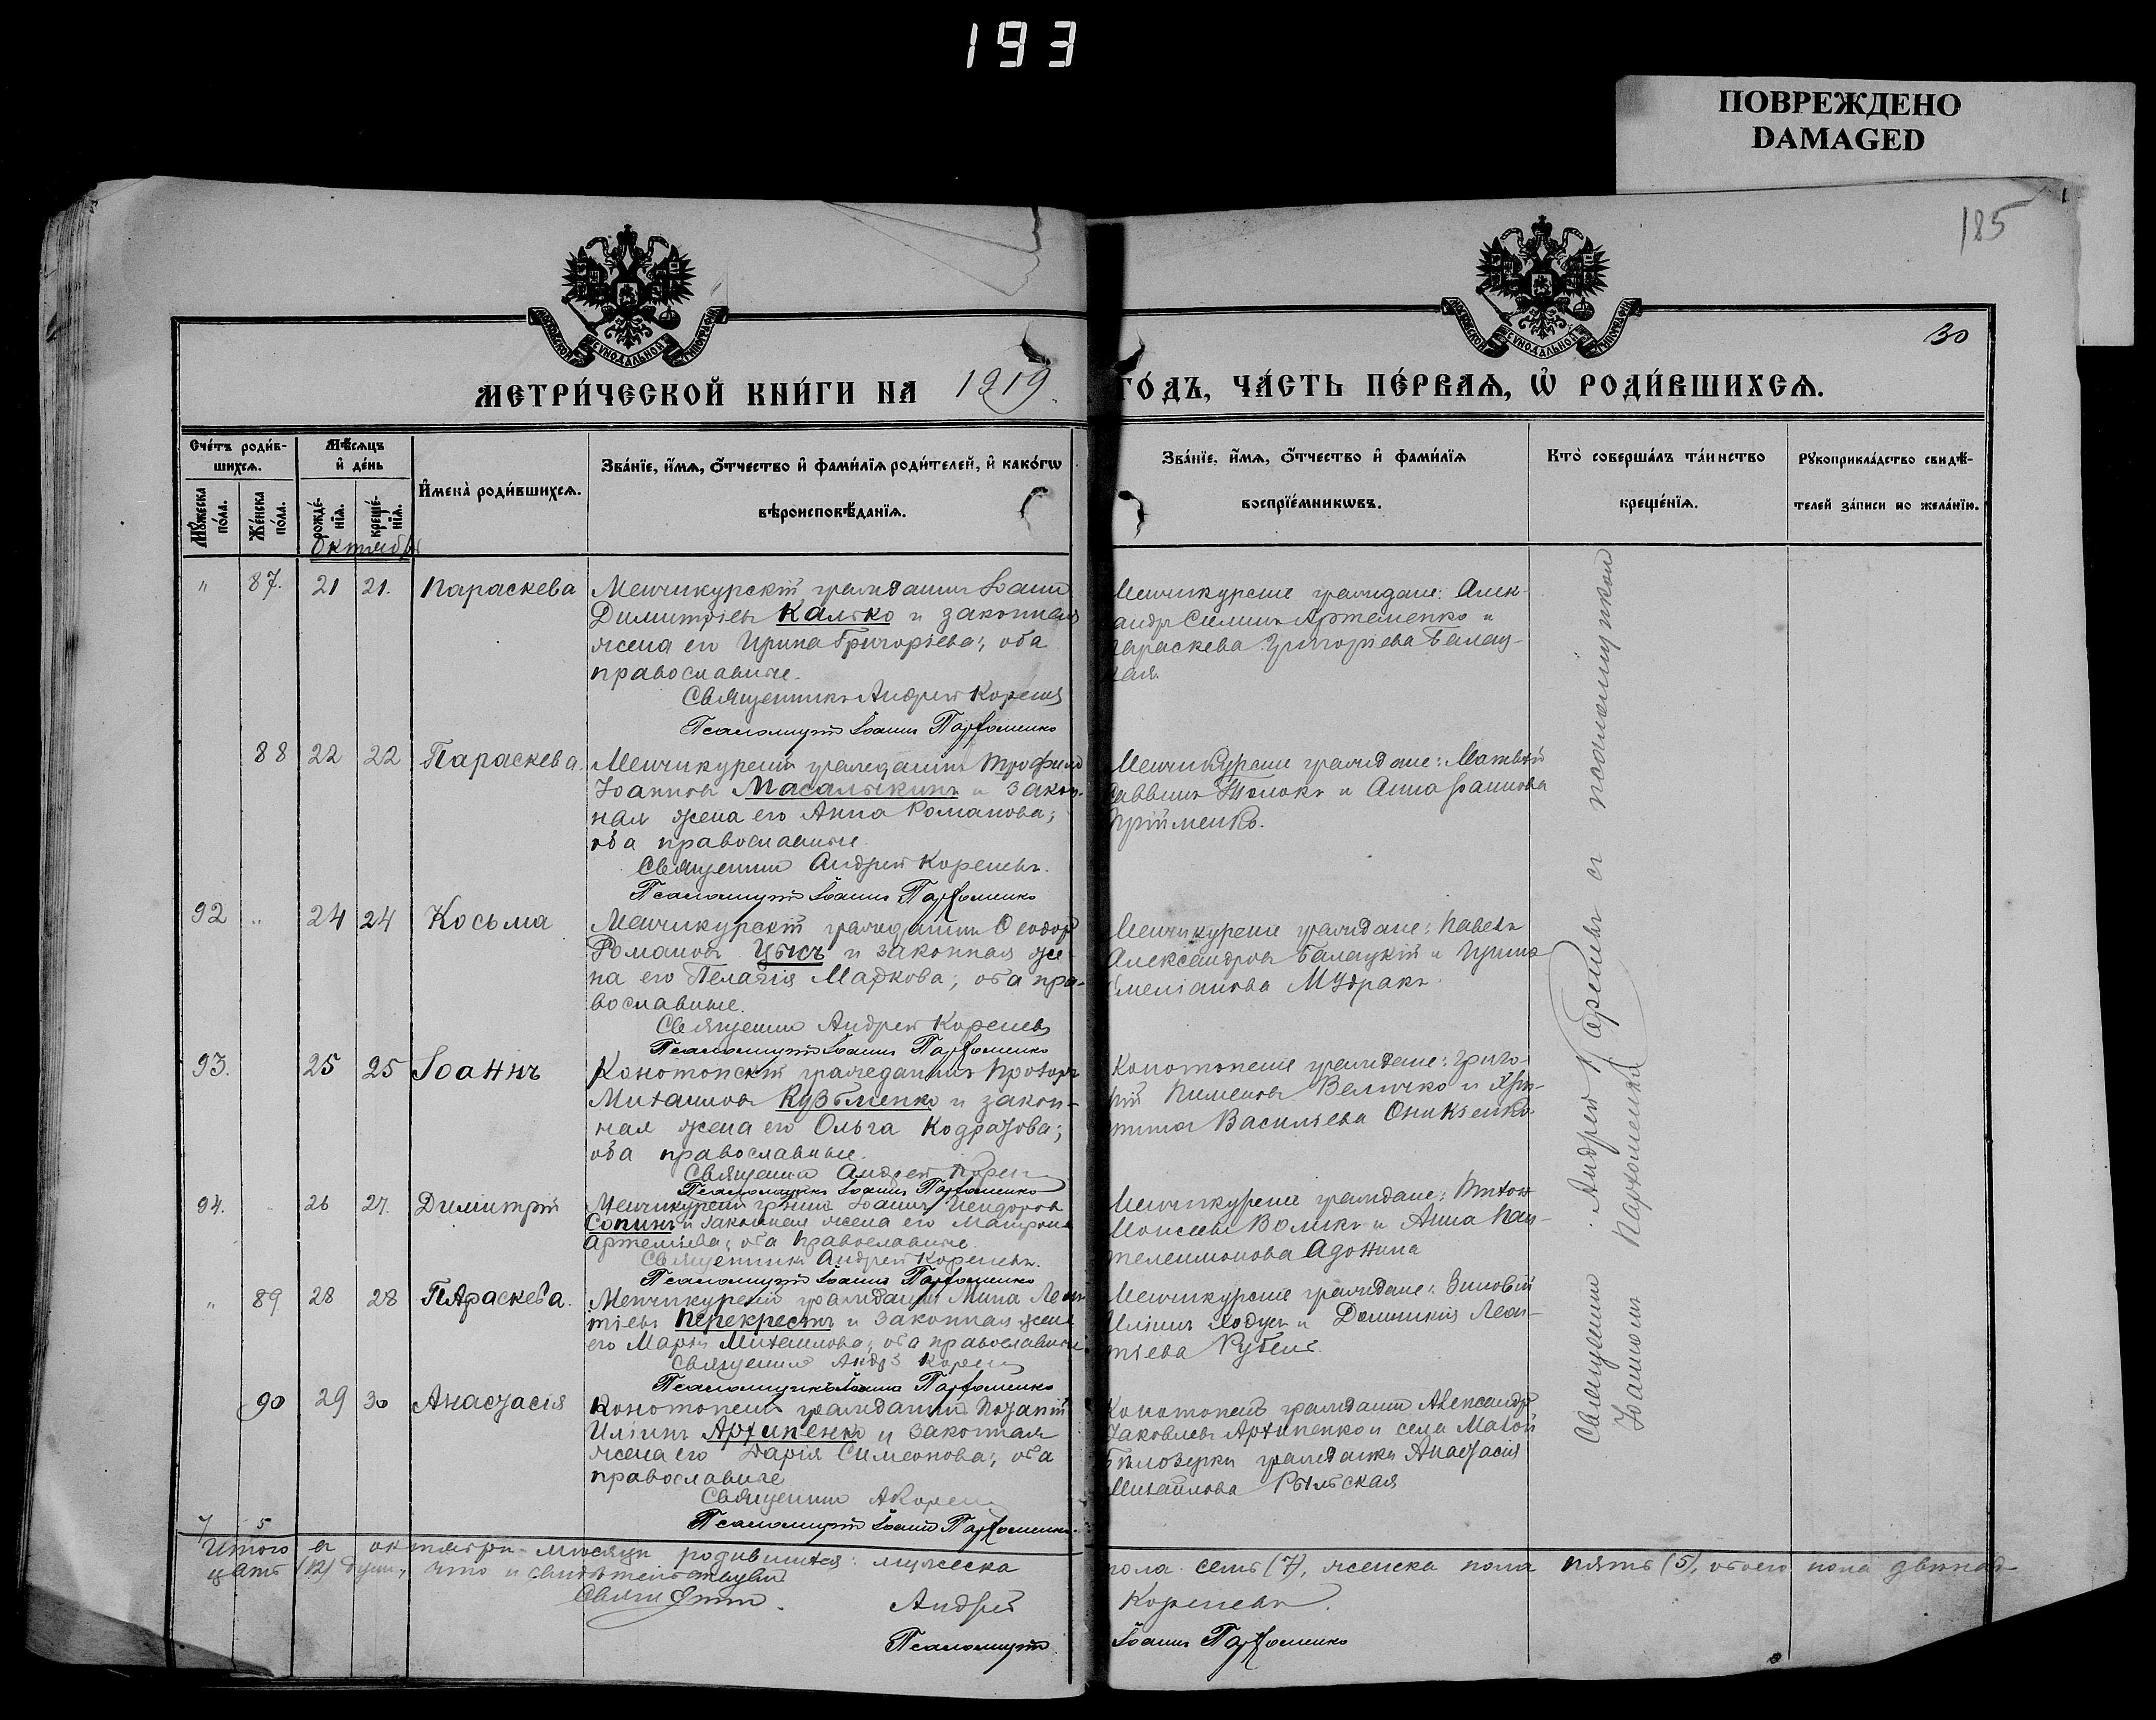 193
ПОВРЕЖДЕНО
DAMAGED
185
30
МЕТРИ́ЧЕСКОЙ КНИ́ГИ НА 1919
ГО́ДЪ, ЧА́СТЬ ПЕ́РВАѦ, Ѽ РОДИ́ВШИХСѦ.
Сче́тъ роди́в-
шихсѧ.
Мꙋ́жеска по́ла.
Же́нска по́ла.
Мѣ́сѧцъ
и҆ де́нь
рожде́-
нїѧ.
креще́-
нїѧ.
И҆мена̀ роди́вшихсѧ.
Зва́нїе, и҆́мѧ, ѻ҆́тчество и҆ фами́лїѧ роди́телей, и҆ како́гѡ
вѣроисповѣ́данїѧ.
Зва́нїе, и҆́мѧ, ѻ҆́тчество и҆ фами́лїѧ
воспрїе́мникѡвъ.
Кто̀ соверша́лъ та́инство
креще́нїѧ.
Рꙋкоприкла́дство свидѣ́-
телей за́писи по жела́нїю.
Октябрь
" 87. 21 21. Параскева
Менчикурскій гражданинъ Іоаннъ
Димитріевъ Калько и законная
жена его Ирина Григорьева; оба
православные.
Священникъ Андрей Кореневъ
Псаломщикъ Іоаннъ Парфоменко
Менчикурские граждане: Алек-
андръ Симинъ Артеменко и
параскева Григорьева Балац-
кая.
88 22 22 Параскева.
Менчикурскій гражданинъ Трофимъ
Іоанновъ Масалыкинъ и закон-
ная жена его Анна Романова;
оба православные.
Священник Андрей Кореневъ.
Псаломщикъ Іоаннъ Парфоменко
Менчикурские граждане: Матвей
Саввинъ и Анна Іоаннова
Прійменко.
92 " 24 24 Косьма
Менчикурскій гражданинъ Ѳеодоръ
Романовъ Цысъ и законная же-
на его Пелагія Маркова; оба пра-
вославные.
Священник Андрей Кореневъ
Псаломщикъ Іоаннъ Парфоменко
Менчикурские граждане: Павелъ
Александровъ Балацкій и Ирина
Емеліанова Мудракъ.
93. 25 25 Іоаннъ
Конотопскій гражданинъ
Михаиловъ Кузьменко и закон-
ная жена его Ольга Кодратова;
оба православные.
Священник Андрей Корен
Псаломщикъ Іоаннъ Парфоменко
Конотопские граждане: Григо-
рій Пименовъ Величко и Хри-
стина Васильева Оникіенко
94. " 26 27. Димитрій
Менчикурскій гр-нинъ Іоаннъ Исидоровъ
Сопинъ и законная жена его Матрона
Артеміева; оба православные.
Священникъ Андрей Кореневъ.
Псаломщикъ Іоаннъ Парфоменко
Менчикурские граждане: Антонъ
Моисеевъ Воликъ и Анна Пан-
телеимонова Адонина
" 89 28 28 ПАраскева.
Менчикурскій гражданинъ Мина Леон-
тіевъ Перекрестъ и законная жена
его Марія Михаилова; оба православные
Священник Андр Корен
Псаломщикъ Іоаннъ Парфоменко
Менчикурские граждане: Зиновій
Иліинъ Ходусъ и Домникія Леон-
тіева
90 29 30 Анастасія
Конотопскій гражданинъ Потапій
Иліинъ Архипенко и законная
жена его Дарія Симеонова; оба
православные
Священник АКорен
Псаломщикъ Іоаннъ Парфоменко
Конотопскій гражданин Александръ
Іаковлевъ Архипенко и села Малой
Бѣлозерки гражданка Анастасія
Михайлова Рыльская
Священник Андрей Кореневъ съ псаломщикомъ
Іоанномъ Парфоменко
7 5
Итого въ октябрѣ мѣсяцѣ родившихся: мужеска пола семь (7), женска пола пять (5), обоего пола двѣнад-
цать (12) душъ, что и свидѣтельствуемъ
Священник Андрей Кореневъ.
Псаломщикъ Іоаннъ Парфоменко